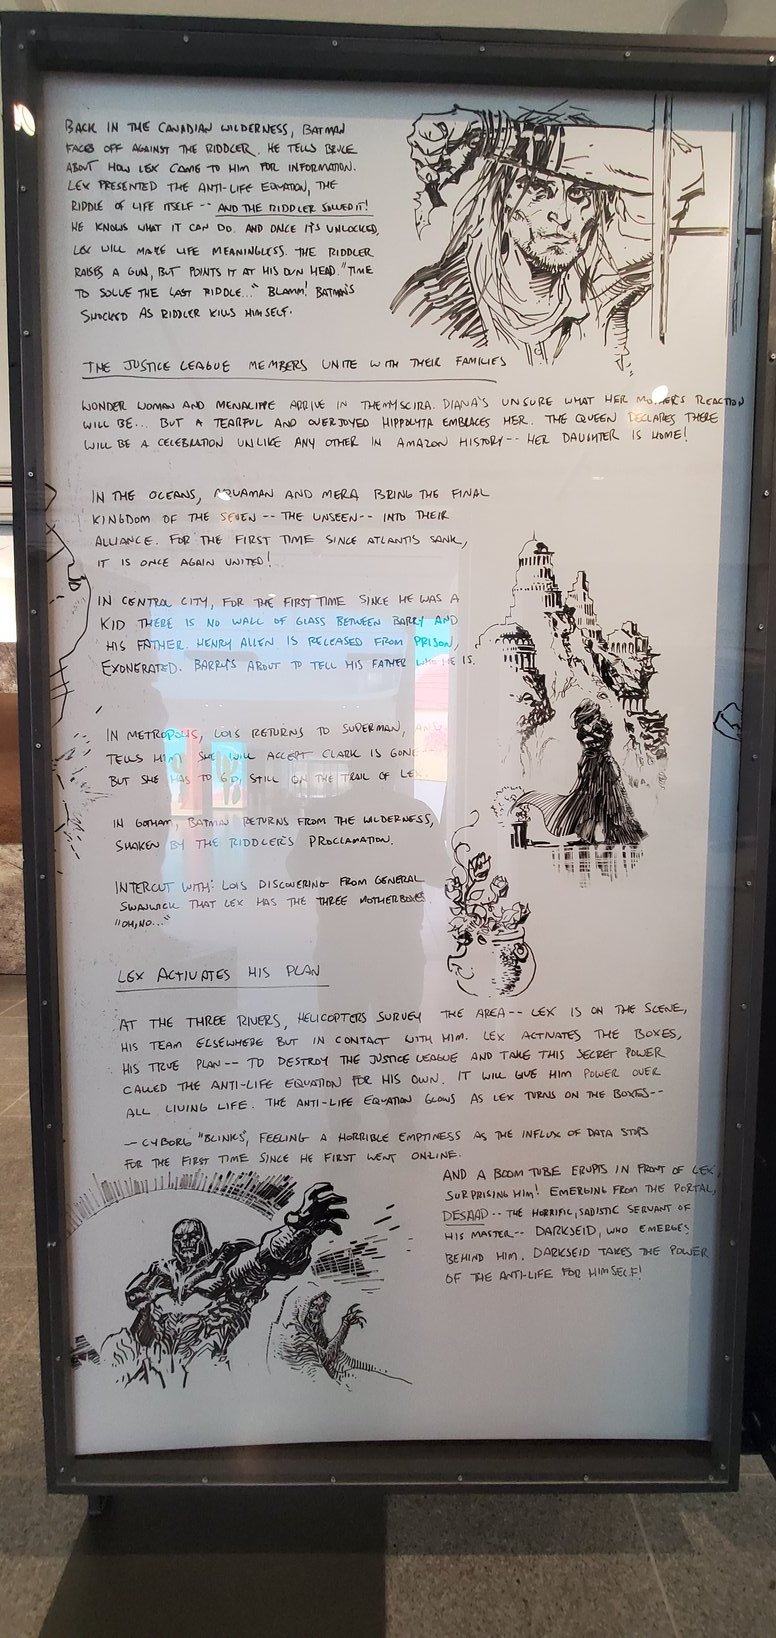 BACK IN THE CANADIAN WILDERNESS, BATMAN
FACES OFF AGAINST THE RIDDLER. HE TELLS BRUCE
ABOUT HOW LEX CAME TO HIM FOR INFORMATION.
LEX PRESENTED THE ANTI-LIFE EQUATION, THE
RIDDLE OF LIFE ITSELF -- AND THE RIDDLER SOLVED IT!
HE KNOWS WHAT IT CAN DO. AND ONCE IT'S UNLOCKED,
LEX WILL MAKE LIFE MEANINGLESS. THE RIDDLER
RAISES A GUN, BUT POINTS IT AT HIS OWN HEAD. "TIME
TO SOLVE THE LAST RIDDLE..." BLAMM! BATMAN'S
SHOCKED AS RIDDLER KILLS HIMSELF.
THE JUSTICE LEAGUE MEMBERS UNITE WITH THEIR FAMILIES
WONDER WOMAN AND MENALIPPE ARRIVE IN THEMYSCIRA. DIANA'S UNSURE WHAT HER MOTHER'S REACTION
WILL BE... BUT A TEARFUL AND OVERJOYED HIPPOLYTA EMBRACES HER. THE QUEEN DECLARES THERE
WILL BE A CELEBRATION UNLIKE ANY OTHER IN AMAZON HISTORY-- HER DAUGHTER IS HOME!
IN THE OCEANS, AQUAMAN AND MERA BRING THE FINAL
KINGDOM OF THE SEVEN -- THE UNSEEN-- INTO THEIR
ALLIANCE. FOR THE FIRST TIME SINCE ATLANTIS SANK,
IT IS ONCE AGAIN UNITED!
IN CENTRAL CITY, FOR THE FIRST TIME SINCE HE WAS A
KID THERE IS NO WALL OF GLASS BETWEEN BARRY AND
HIS FATHER. HENRY ALLEN IS RELEASED FROM PRISON,
EXONERATED. BARRY'S ABOUT TO TELL HIS FATHER WHO HE IS.
IN METROPOLIS, LOIS RETURNS TO SUPERMAN, AND
TELLS HIM SHE WILL ACCEPT CLARK IS GONE--
BUT SHE HAS TO GO, STILL ON THE TRAIL OF LEX.
IN GOTHAM, BATMAN RETURNS FROM THE WILDERNESS,
SHAKEN BY THE RIDDLER'S PROCLAMATION.
INTERCUT WITH: LOIS DISCOVERING FROM GENERAL
SWANWICK THAT LEX HAS THE THREE MOTHERBOXES
"OH, NO..."
LEX ACTIVATES HIS PLAN
AT THE THREE RIVERS, HELICOPTERS SURVEY THE AREA-- LEX IS ON THE SCENE,
HIS TEAM ELSEWHERE BUT IN CONTACT WITH HIM. LEX ACTIVATES THE BOXES,
HIS TRUE PLAN-- TO DESTROY THE JUSTICE LEAGUE AND TAKE THIS SECRET POWER
CALLED THE ANTI-LIFE EQUATION FOR HIS OWN. IT WILL GIVE HIM POWER OVER
ALL LIVING LIFE. THE ANTI-LIFE EQUATION GLOWS AS LEX TURNS ON THE BOXES--
-- CYBORG "BLINKS", FEELING A HORRIBLE EMPTINESS AS THE INFLUX OF DATA STOPS
FOR THE FIRST TIME SINCE HE FIRST WENT ONLINE.
AND A BOOM TUBE ERUPTS IN FRONT OF LEX,
SURPRISING HIM! EMERGING FROM THE PORTAL,
DESAAD -- THE HORRIFIC, SADISTIC SERVANT OF
HIS MASTER-- DARKSEID, WHO EMERGES
BEHIND HIM. DARKSEID TAKES THE POWER
OF THE ANTI-LIFE FOR HIMSELF!